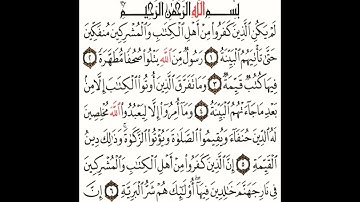 بِسْمِ اللَّهِ الرَّحْمَٰنِ الرَّحِيمِ
لَمْ يَكُنِ الَّذِينَ كَفَرُوا مِنْ أَهْلِ الْكِتَابِ وَالْمُشْرِكِينَ مُنفَكِّينَ
حَتَّىٰ تَأْتِيَهُمُ الْبَيِّنَةُ ١ رَسُولٌ مِّنَ اللَّهِ يَتْلُوا صُحُفًا مُّطَهَّرَةً ٢
فِيهَا كُتُبٌ قَيِّمَةٌ ٣ وَمَا تَفَرَّقَ الَّذِينَ أُوتُوا الْكِتَابَ إِلَّا مِنْ
بَعْدِ مَا جَاءَتْهُمُ الْبَيِّنَةُ ٤ وَمَا أُمِرُوا إِلَّا لِيَعْبُدُوا اللَّهَ مُخْلِصِينَ
لَهُ الدِّينَ حُنَفَاءَ وَيُقِيمُوا الصَّلَوٰةَ وَيُؤْتُوا الزَّكَوٰةَ وَذَٰلِكَ دِينُ
الْقَيِّمَةِ ٥ إِنَّ الَّذِينَ كَفَرُوا مِنْ أَهْلِ الْكِتَابِ وَالْمُشْرِكِينَ
فِي نَارِ جَهَنَّمَ خَالِدِينَ فِيهَا أُولَٰئِكَ هُمْ شَرُّ الْبَرِيَّةِ ٦ إِنَّ